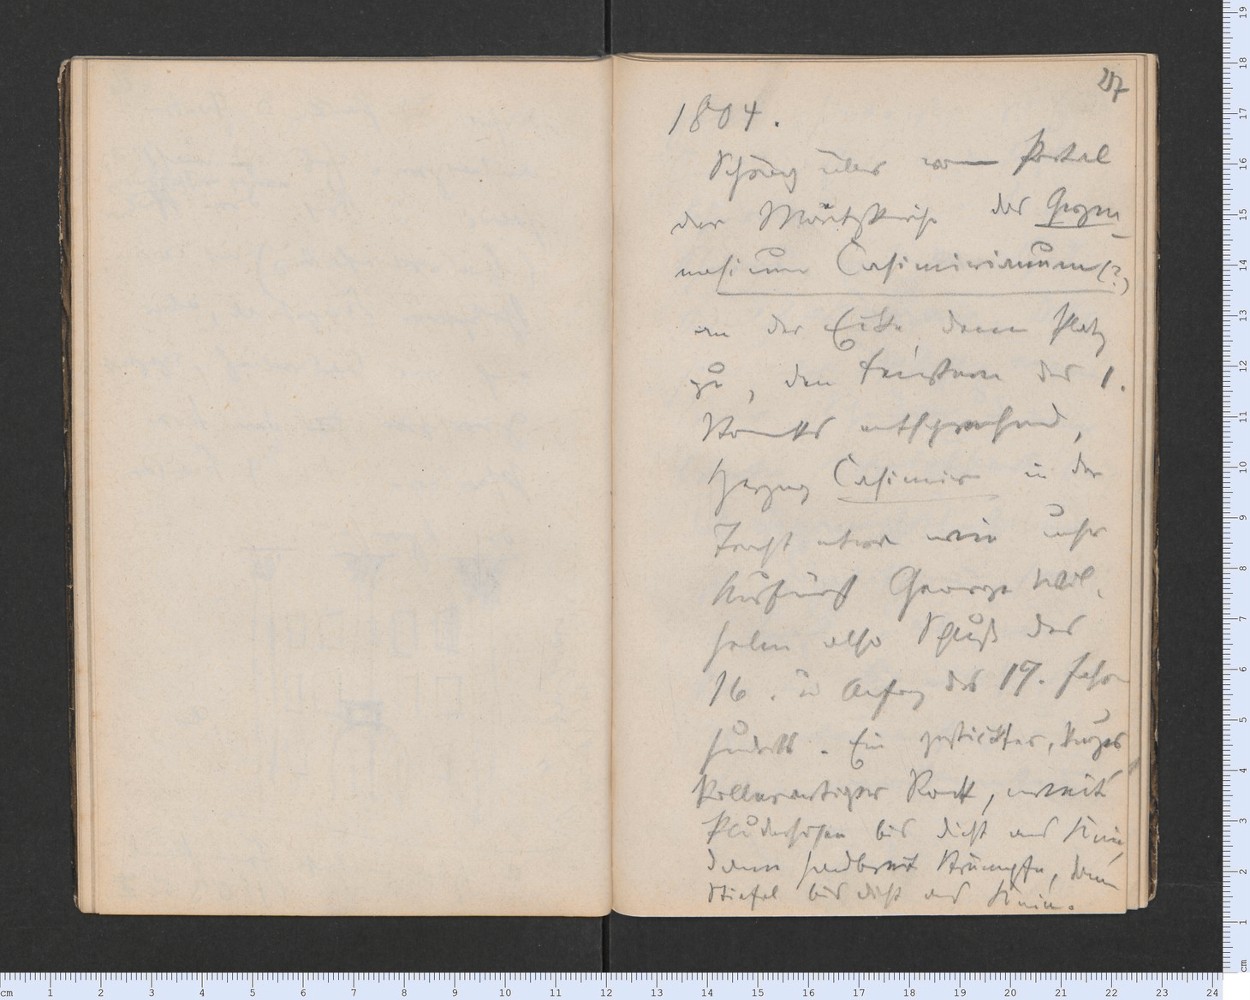 27
1804.
Schräg über vom Portal
der Moritzkirche das Gym
nasium Casimirianum (?)
an der Ecke, dem Platz
zu, den Fenstern des 1.
Stocks entsprechend,
Herzog Casimir in der
Tracht etwa wie unser
Kurfürst George Wil,
helm also Schluß des
16. u Anfang des 17. Jahr
hunderts. Ein gestickter, kurzer
kollerartiger Rock, weite
Pluderhosen bis dicht ans Knie,
dann handbreit Strümpfe, dann
Stiefel bis dicht ans Knie.